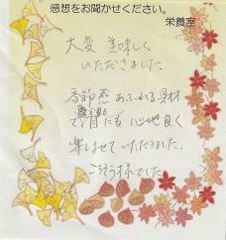 感想をお聞かせください。
栄養室
大変 美味しく
いただきました。
季節感あふれる具材
で目にも 心地良く
楽しませて いただきました。
ごちそう様でした